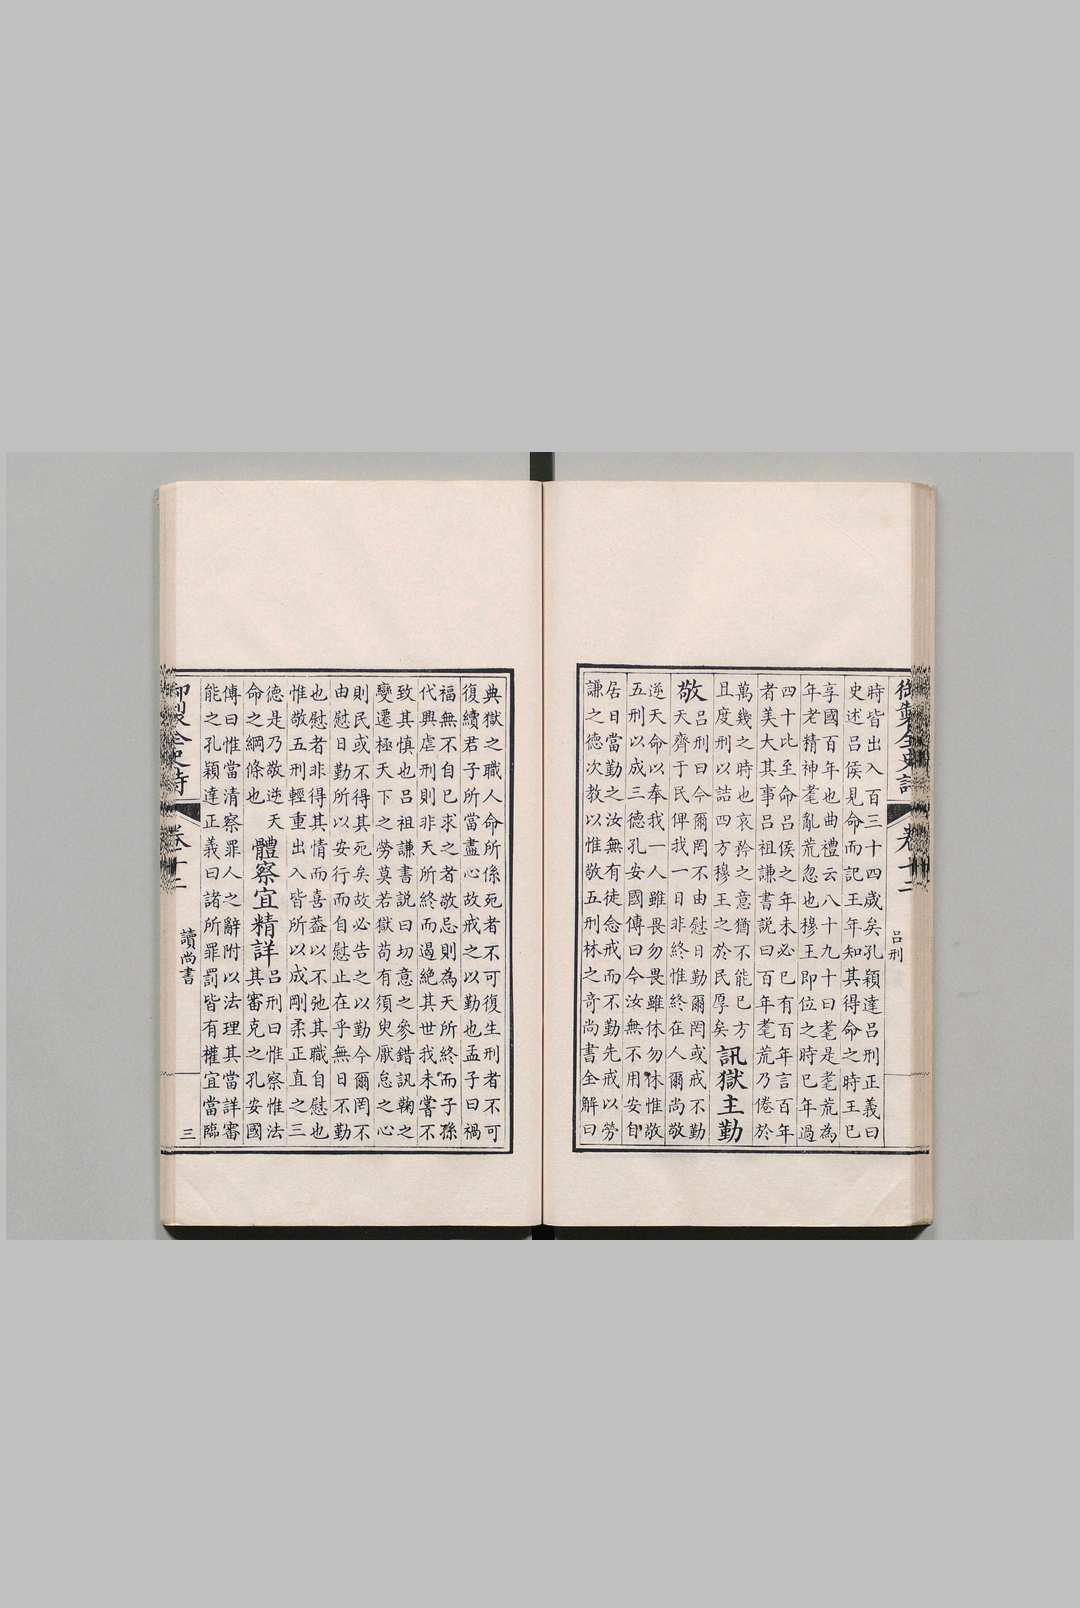 御製全史詩 卷十二 呂刑
時皆出入百三十四歲矣孔穎達呂刑正義曰
史述呂侯見命而記王年知其得命之時王已
享國百年也曲禮云八十九十曰耄是耄荒為
年老精神耄亂荒忽也穆王即位之時已年過
四十比至命呂侯之年未必已有百年言百年
者美大其事呂祖謙書説曰百年耄荒乃倦於
萬幾之時也哀矜之意猶不能已方
且度刑以詰四方穆王之於民厚矣
訊獄主勤
敬
呂刑曰今爾罔不由慰日勤爾罔或戒不勤
天齊于民俾我一日非終惟終在人爾尚敬
逆天命以奉我一人雖畏勿畏雖休勿休惟敬
五刑以成三德孔安國傳曰今汝無不用安自
居日當勤之汝無有徒念戒而不勤先戒以勞
謙之德次教以惟敬五刑林之奇尚書全解曰
典獄之職人命所係死者不可復生刑者不可
復續君子所當盡心故戒之以勤也孟子曰禍
福無不自已求之者敬忌則為天所終而子孫
代興虐刑則非天所終而遏絶其世我未嘗不
致其慎也呂祖謙書説曰切意之參錯訊鞠之
變遷極天下之勞莫若獄苟有須臾厭怠之心
則民或不得其死矣故必告之以勤今爾罔不
由慰日勤所以安行而自慰止在乎無日不勤
也慰者非得其情而喜葢以不弛其職自慰也
惟敬五刑輕重出入皆所以成剛柔正直之三
德是乃敬逆天
命之綱條也
體察宜精詳
呂刑曰惟察惟法
其審克之孔安國
傳曰惟當清察罪人之辭附以法理其當詳審
能之孔穎達正義曰諸所罪罰皆有權宜當臨
御製全史詩 卷十二 讀尚書 三